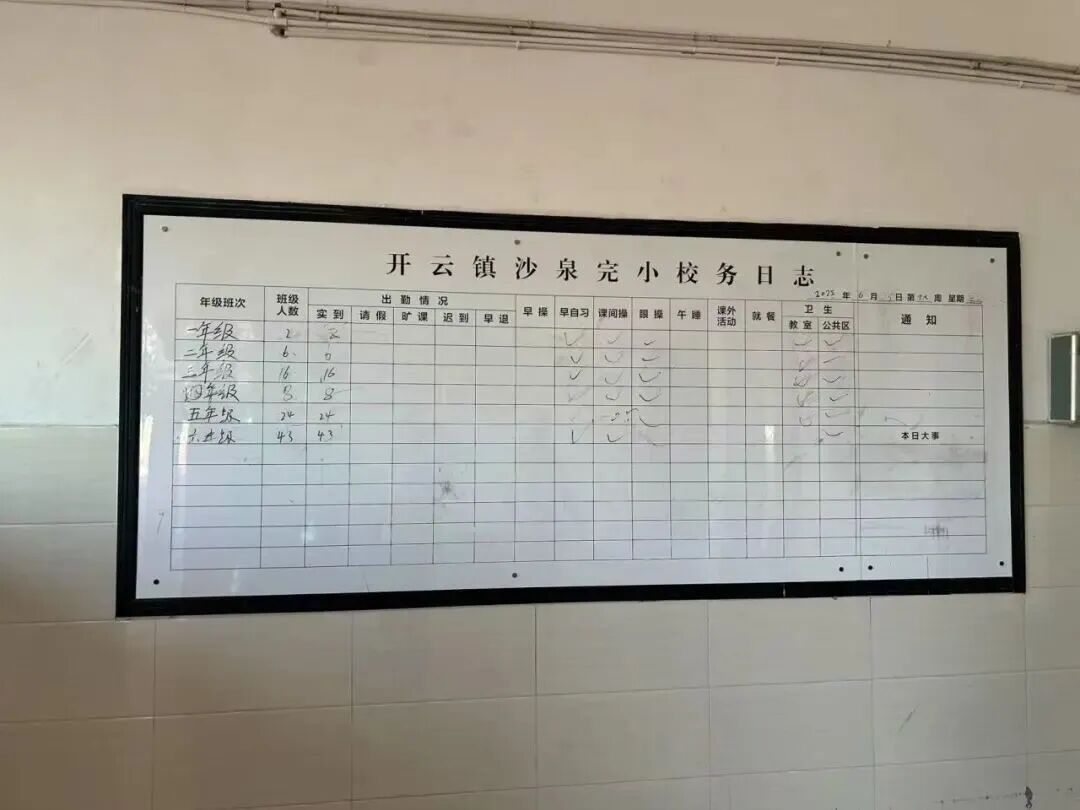 开云镇沙泉完小校务日志
2025 年 6 月 日 第 周 星期三
年级班次 班级人数 出勤情况 早操 早自习 课间操 眼操 午睡 课外活动 就餐 卫生 通知
实到 请假 旷课 迟到 早退 教室 公共区
一年级 2 2
二年级 6
三年级 16 16
四年级 8 8
五年级 24 24
六年级 43 43
本日大事